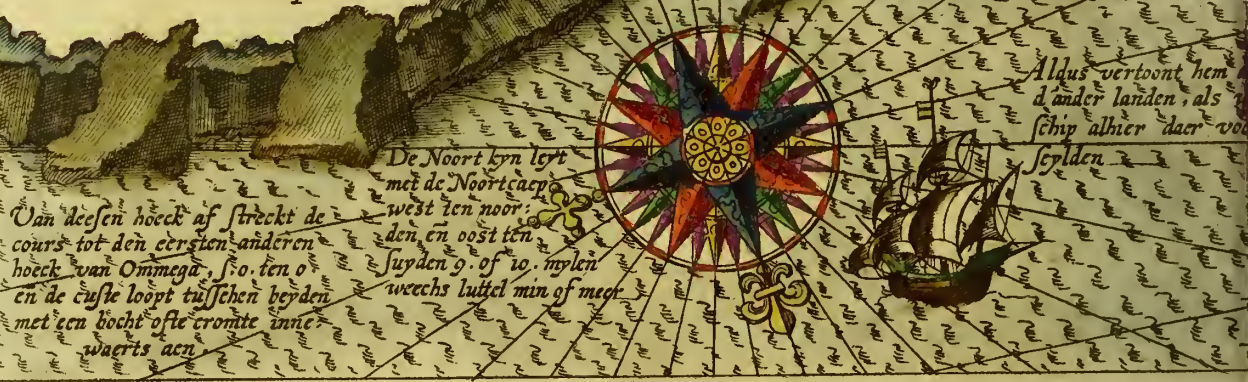 Van deesen hoeck af streckt de
cours tot den eersten anderen
hoeck van Ommega, s.o. ten o
en de custe loopt tusschen beyden
met een bocht ofte cromte inne-
waerts aen
De Noort kyn leyt
met de Noortcaep
west ten noor-
den en oost ten
suyden 9. of 10. mylen
weechs luttel min of meer
Aldus vertoont hem
d'ander landen, als
schip alhier daer
seylden